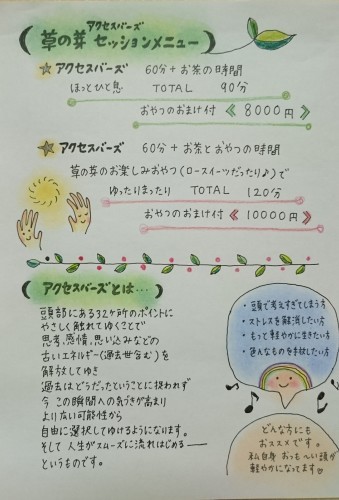 アクセスバーズ
草の芽 セッションメニュー
☆アクセスバーズ 60分+お茶の時間
ほっとひと息 TOTAL 90分
おやつのおまけ付 《8000円》
☆アクセスバーズ 60分+お茶とおやつの時間
草の芽のお楽しみおやつ(ロースイーツだったり♪)で
ゆったりまったり TOTAL 120分
おやつのおまけ付 《10000円》
アクセスバーズとは・・・
頭部にある32ヶ所のポイントに
やさしく触れてゆくことで
思考、感情、思い込みなどの
古いエネルギー(過去世含む)を
解放してゆき
過去はどうだったということに捉われず
今この瞬間への気づきが高まり
より広い可能性から
自由に選択してゆけるようになります。
そして 人生がスムーズに流れはじめる──
というものです。
・頭で考えすぎてしまう方
・ストレスを解消したい方
・もっと軽やかに生きたい方
・色んなものを手放したい方
どんな方にも
おススメです。
私自身 おっも〜い頭が
軽やかになってます